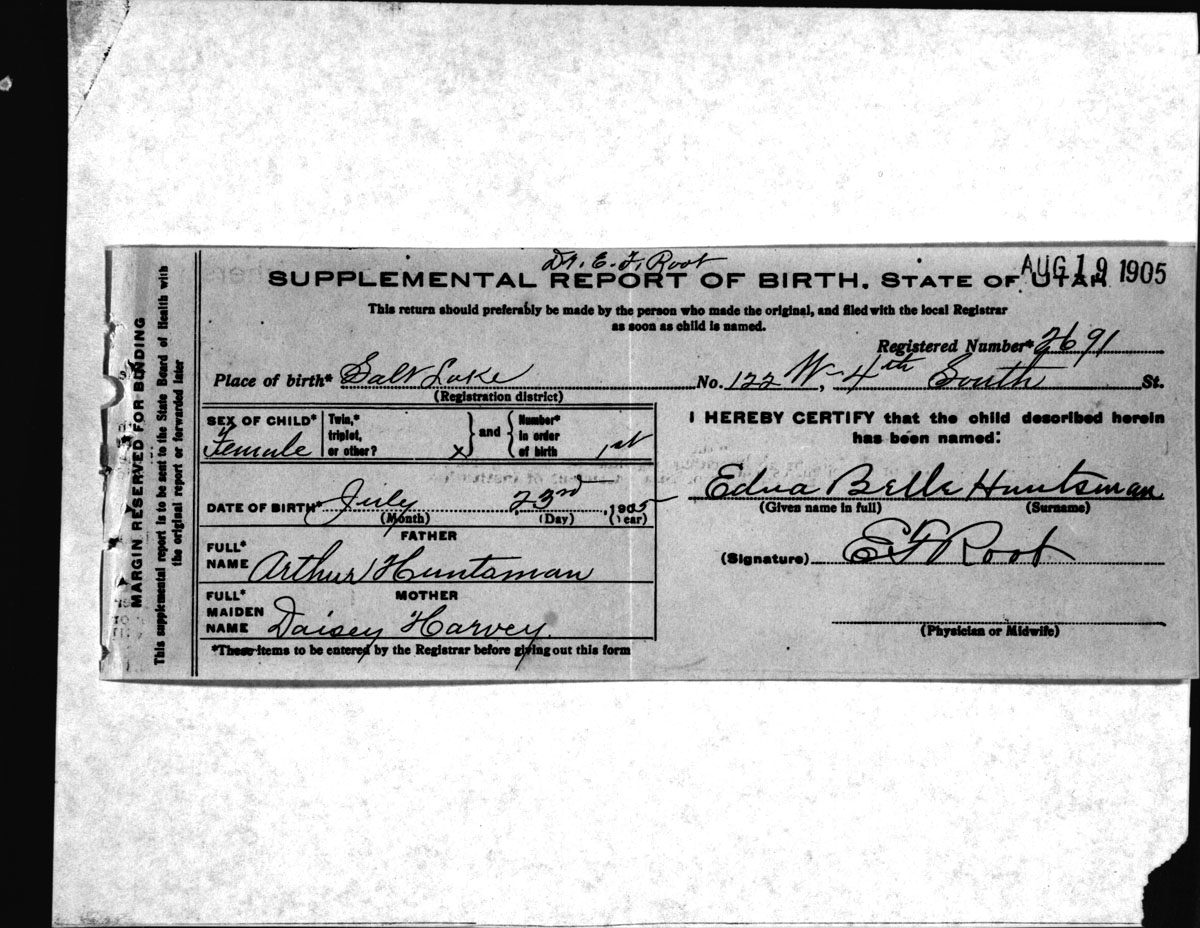 Dr. E. F. Root
SUPPLEMENTAL REPORT OF BIRTH. STATE OF UTAH
AUG 19 1905
This return should preferably be made by the person who made the original, and filed with the local Registrar
as soon as child is named.
Registered Number* 2691
Place of birth* Salt Lake No. 122 W. 4th South St.
(Registration district)
SEX OF CHILD* Female
Twin,*
triplet,
or other? x
and
Number*
in order
of birth 1st
DATE OF BIRTH* July 23rd, 1905
(Month) (Day) (Year)
FATHER
FULL*
NAME Arthur Huntsman
MOTHER
FULL*
MAIDEN
NAME Daisey Harvey.
*These items to be entered by the Registrar before giving out this form
I HEREBY CERTIFY that the child described herein
has been named:
Edna Belle Huntsman
(Given name in full) (Surname)
(Signature) E F Root
(Physician or Midwife)
MARGIN RESERVED FOR BINDING
This supplemental report is to be sent to the State Board of Health with
the original report or forwarded later